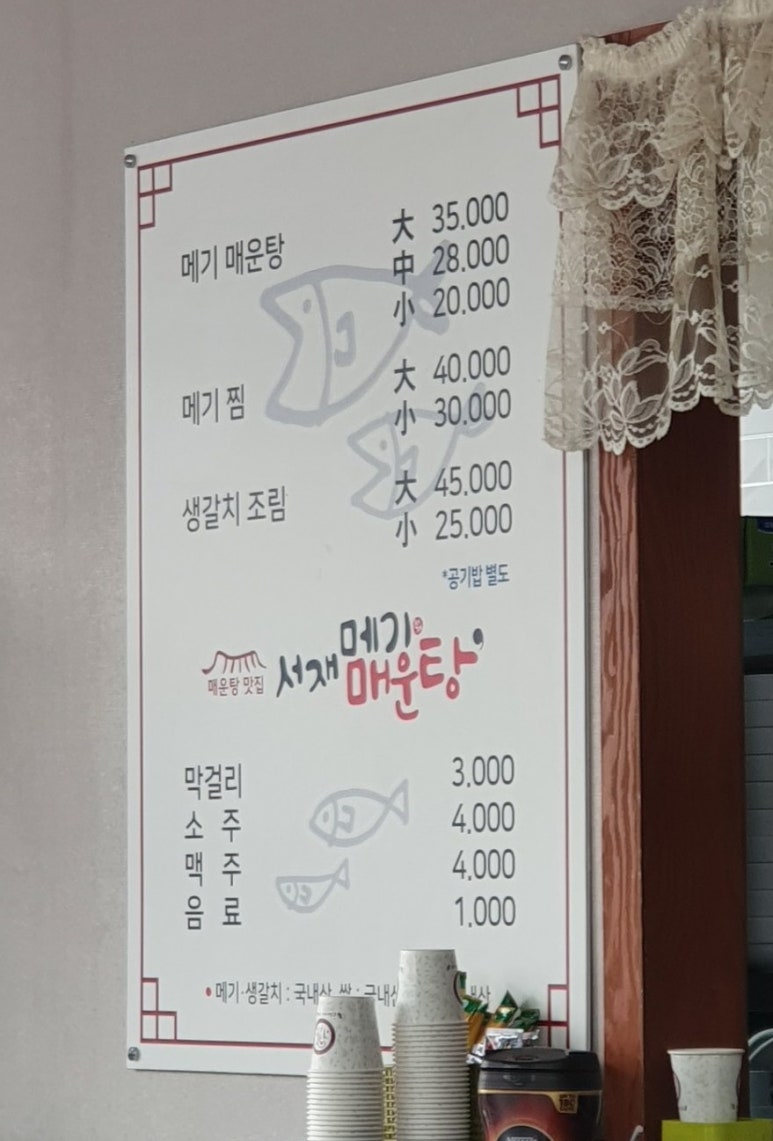 大 35,000
메기 매운탕 中 28,000
小 20,000
大 40,000
메기 찜 小 30,000
大 45,000
생갈치 조림 小 25,000
*공기밥 별도
매운탕 맛집 서재 메기 매운탕
막걸리 3,000
소 주 4,000
맥 주 4,000
음 료 1,000
• 메기·생갈치 : 국내산, 쌀 :